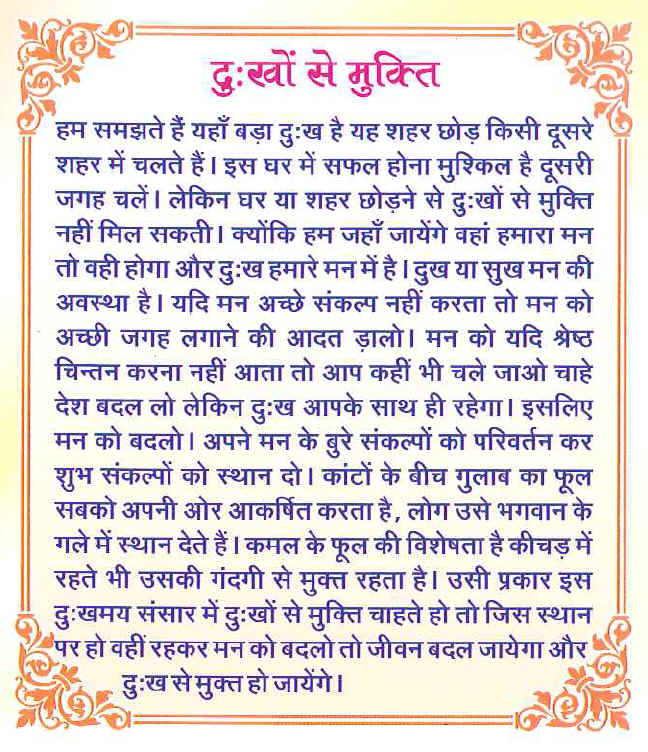 दुःखों से मुक्ति
हम समझते हैं यहाँ बड़ा दुःख है यह शहर छोड़ किसी दूसरे
शहर में चलते हैं। इस घर में सफल होना मुश्किल है दूसरी
जगह चलें। लेकिन घर या शहर छोड़ने से दुःखों से मुक्ति
नहीं मिल सकती। क्योंकि हम जहाँ जायेंगे वहां हमारा मन
तो वही होगा और दुःख हमारे मन में है। दुख या सुख मन की
अवस्था है। यदि मन अच्छे संकल्प नहीं करता तो मन को
अच्छी जगह लगाने की आदत ड़ालो। मन को यदि श्रेष्ठ
चिन्तन करना नहीं आता तो आप कहीं भी चले जाओ चाहे
देश बदल लो लेकिन दुःख आपके साथ ही रहेगा। इसलिए
मन को बदलो। अपने मन के बुरे संकल्पों को परिवर्तन कर
शुभ संकल्पों को स्थान दो। कांटों के बीच गुलाब का फूल
सबको अपनी ओर आकर्षित करता है, लोग उसे भगवान के
गले में स्थान देते हैं। कमल के फूल की विशेषता है कीचड़ में
रहते भी उसकी गंदगी से मुक्त रहता है। उसी प्रकार इस
दुःखमय संसार में दुःखों से मुक्ति चाहते हो तो जिस स्थान
पर हो वहीं रहकर मन को बदलो तो जीवन बदल जायेगा और
दुःख से मुक्त हो जायेंगे।